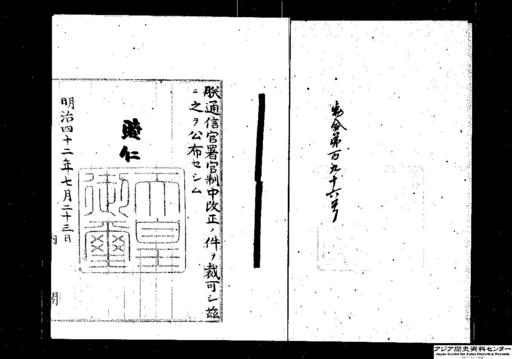 勅令第百九十六号
朕通信官署官制中改正ノ件ヲ裁可シ茲
ニ之ヲ公布セシム
睦仁
天皇
御璽
明治四十二年七月二十三日
内閣
アジア歴史資料センター
Japan Center for Asian Historical Records